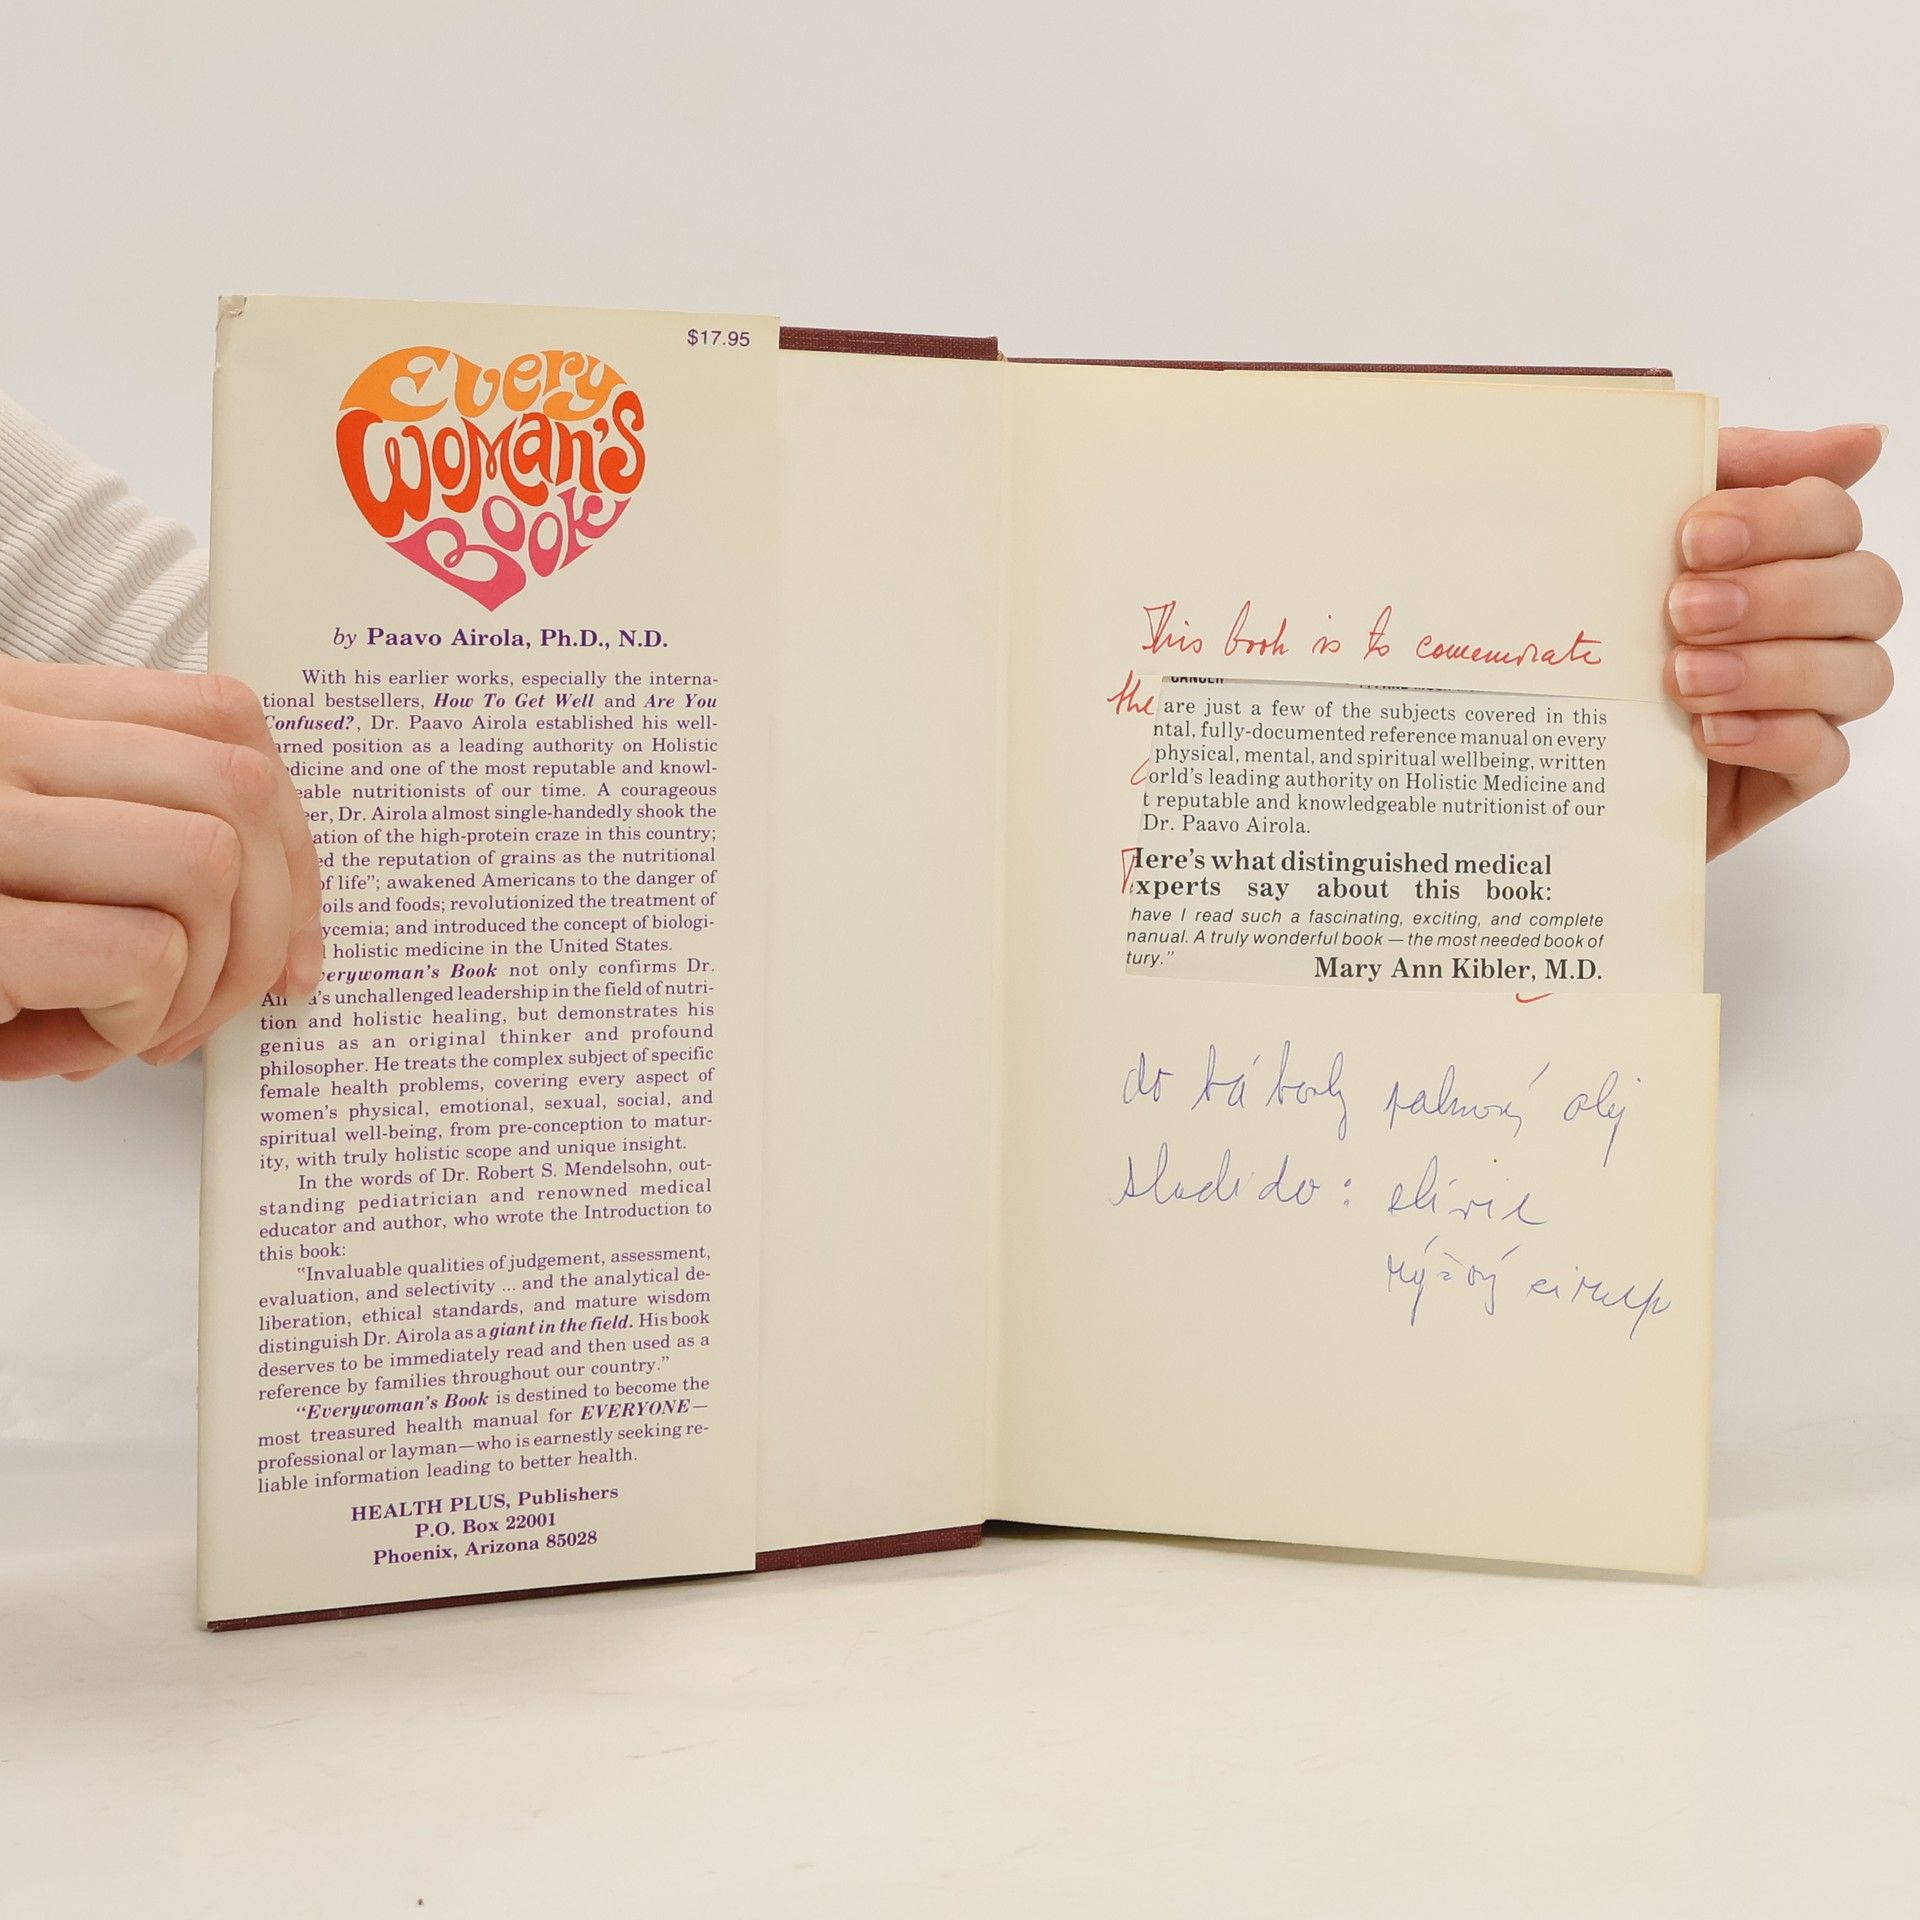 $17.95
Every
Woman's
Book
by Paavo Airola, Ph.D., N.D.
With his earlier works, especially the interna-
tional bestsellers, How To Get Well and Are You
Confused?, Dr. Paavo Airola established his well-
arned position as a leading authority on Holistic
dicine and one of the most reputable and knowl-
eable nutritionists of our time. A courageous
eer, Dr. Airola almost single-handedly shook the
ation of the high-protein craze in this country;
ed the reputation of grains as the nutritional
of life"; awakened Americans to the danger of
oils and foods; revolutionized the treatment of
ycemia; and introduced the concept of biologi-
l holistic medicine in the United States.
verywoman's Book not only confirms Dr.
Ai a's unchallenged leadership in the field of nutri-
tion and holistic healing, but demonstrates his
genius as an original thinker and profound
philosopher. He treats the complex subject of specific
female health problems, covering every aspect of
women's physical, emotional, sexual, social, and
spiritual well-being, from pre-conception to matur-
ity, with truly holistic scope and unique insight.
In the words of Dr. Robert S. Mendelsohn, out-
standing pediatrician and renowned medical
educator and author, who wrote the Introduction to
this book:
"Invaluable qualities of judgement, assessment,
evaluation, and selectivity ... and the analytical de-
liberation, ethical standards, and mature wisdom
distinguish Dr. Airola as a giant in the field. His book
deserves to be immediately read and then used as a
reference by families throughout our country."
"Everywoman's Book is destined to become the
most treasured health manual for EVERYONE—
professional or layman—who is earnestly seeking re-
liable information leading to better health.
HEALTH PLUS, Publishers
P.O. Box 22001
Phoenix, Arizona 85028
This book is to comemorate
the
CANCER
are just a few of the subjects covered in this
ntal, fully-documented reference manual on every
physical, mental, and spiritual wellbeing, written
orld's leading authority on Holistic Medicine and
t reputable and knowledgeable nutritionist of our
Dr. Paavo Airola.
Here's what distinguished medical
experts say about this book:
have I read such a fascinating, exciting, and complete
manual. A truly wonderful book — the most needed book of
tury."
Mary Ann Kibler, M.D.
do bábovky palmový olej
sladidlo:
rýžový sirup